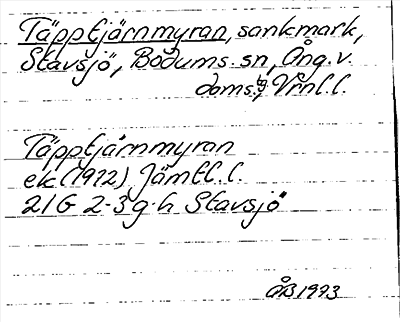 Täpptjärnmyran, sankmark,
Stavsjö, Bodums sn, Ång. v.
doms.g, Vrnl. l.
Täpptjärnmyran
ek (1972) Jämtl. l.
21G 2-3 g-h Stavsjö
ÅB 1993